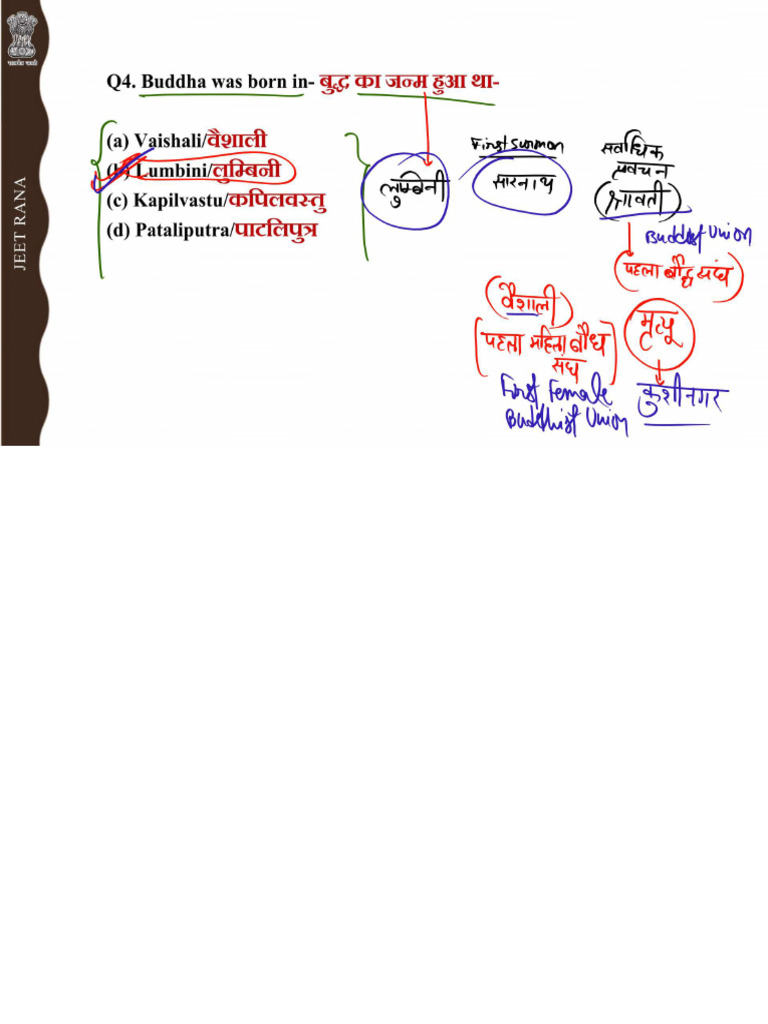 सत्यमेव जयते
JEET RANA
Q4. Buddha was born in- बुद्ध का जन्म हुआ था-
(a) Vaishali/वैशाली
(b) Lumbini/लुम्बिनी
(c) Kapilvastu/कपिलवस्तु
(d) Pataliputra/पाटलिपुत्र
लुम्बिनी
First Surmon
सारनाथ
सर्वाधिक
प्रवचन
श्रावती
Buddist Union
पहला बौद्ध संघ
वैशाली
पहला महिला बौध
संघ
First Female
Buddhist Union
मृत्यु
कुशीनगर